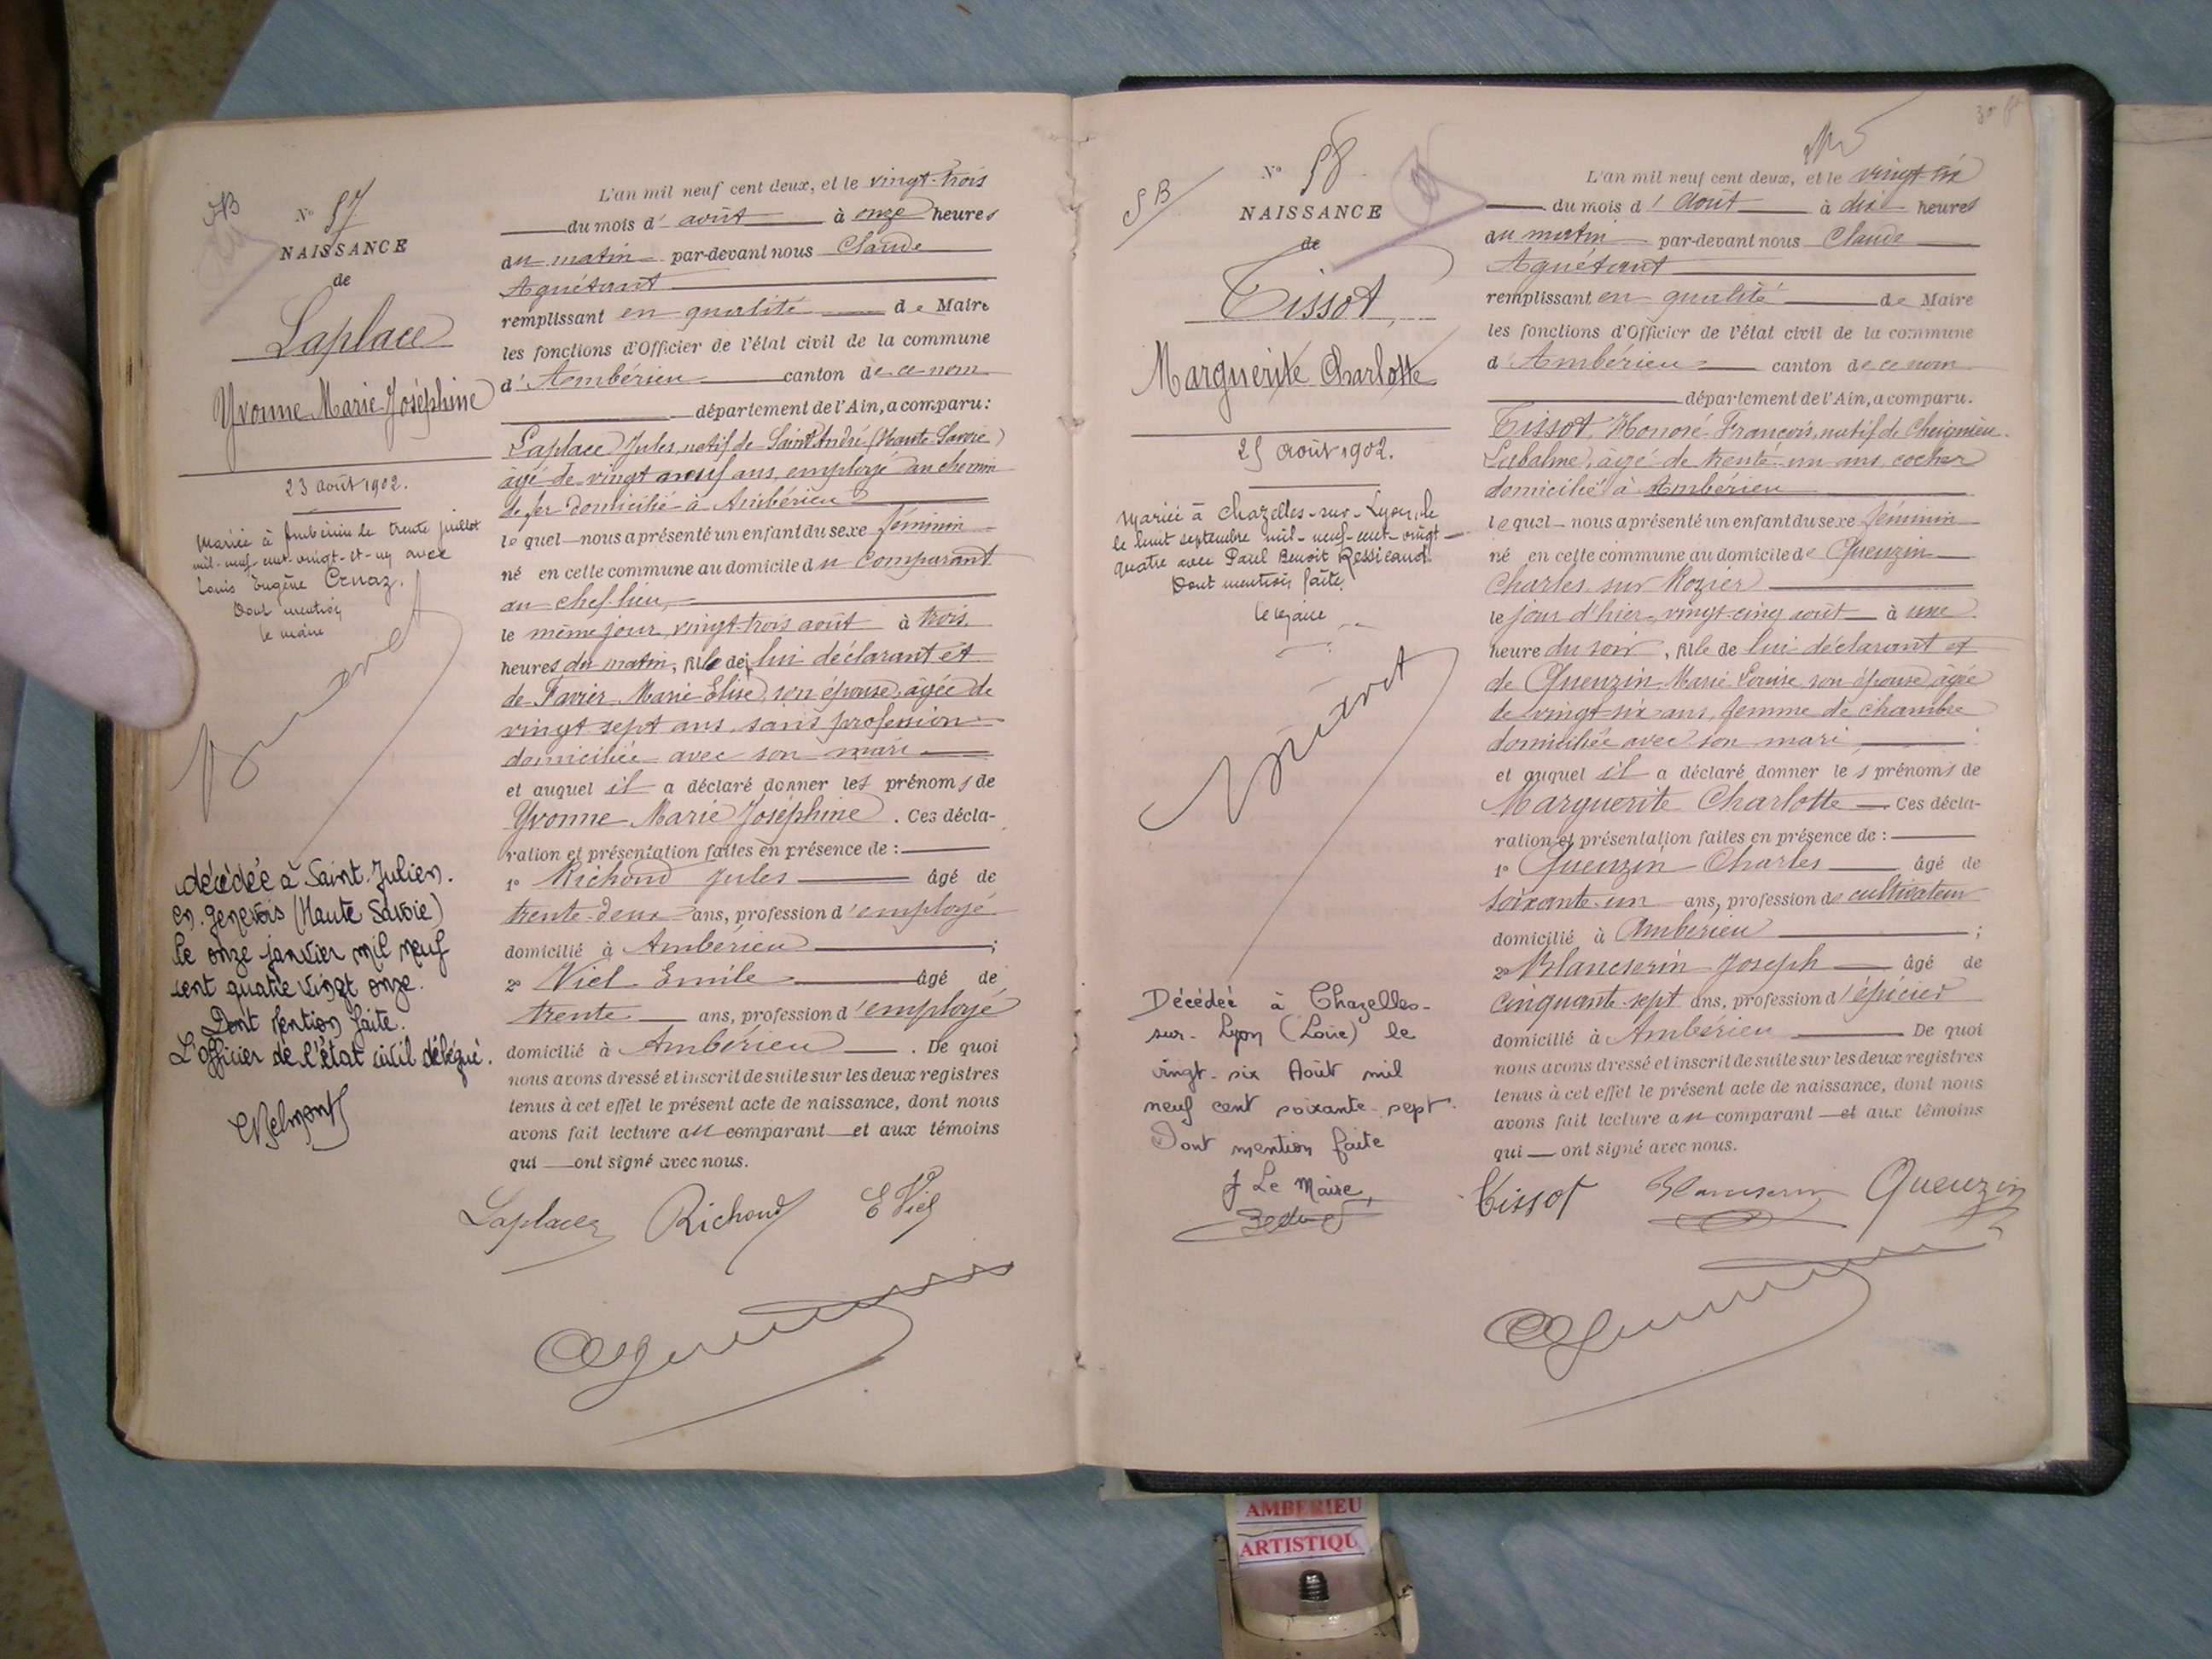 N° 57
NAISSANCE
de
Laplace
Yvonne Marie Joséphine
23 août 1902.
Mariée à Ambérieu le trente juillet
mil-neuf-cent-vingt-et-un avec
Louis Eugène Cruaz.
Dont mention
le maire
décédée à Saint-Julien.
en. genevois (Haute Savoie)
le onze janvier mil neuf
cent quatre vingt onze.
Dont mention faite.
L'officier de l'état civil délégué.
L'an mil neuf cent deux, et le vingt-trois
du mois d'août à onze heures
du matin par-devant nous Claude
Aguétant
remplissant en qualité de Maire
les fonctions d'Officier de l'état civil de la commune
d'Ambérieu canton de ce nom
département de l'Ain, a comparu:
Laplace Jules, natif de Saint André (Haute Savoie)
âgé de vingt neuf ans, employé au chemin
de fer domicilié à Ambérieu
lequel nous a présenté un enfant du sexe féminin
né en cette commune au domicile du Comparant
au chef-lieu,
le même jour, vingt-trois août à trois
heures du matin, fille de lui déclarant et
de Favier Marie Elise, son épouse, âgée de
vingt sept ans, sans profession
domiciliée avec son mari
et auquel il a déclaré donner les prénoms de
Yvonne Marie Joséphine. Ces décla-
ration et présentation faites en présence de :
1° Richoud Jules âgé de
trente-deux ans, profession d'employé
domicilié à Ambérieu ;
2° Viel Emile âgé de
trente ans, profession d'employé
domicilié à Ambérieu. De quoi
nous avons dressé et inscrit de suite sur les deux registres
tenus à cet effet le présent acte de naissance, dont nous
avons fait lecture au comparant et aux témoins
qui ont signé avec nous.
Laplace Richoud E Viel
SB
N° 58
NAISSANCE
de
Tissot,
Marguerite Charlotte
25 août 1902.
Mariée à Chazelles-sur-Lyon, le
le huit septembre mil-neuf-cent-vingt-
quatre avec Paul Benoit Ressicaud.
Dont mention faite
le maire
Décédée à Chazelles-
sur-Lyon (Loire) le
vingt-six Août mil
neuf cent soixante-sept.
Dont mention faite
Le Maire,
L'an mil neuf cent deux, et le vingt-six
du mois d'Août à dix heures
du matin par-devant nous Claude
Aguétant
remplissant en qualité de Maire
les fonctions d'Officier de l'état civil de la commune
d'Ambérieu canton de ce nom
département de l'Ain, a comparu.
Tissot, Honoré François, natif de Cheignieu
Labalme, âgé de trente-un ans, cocher
domicilié à Ambérieu
lequel nous a présenté un enfant du sexe féminin
né en cette commune au domicile de Queuzin
Charles sur Rozier
le jour d'hier, vingt-cinq août à une
heure du soir, fille de lui déclarant et
de Queuzin Marie Louise son épouse, âgée
de vingt-six ans, femme de chambre
domiciliée avec son mari
et auquel il a déclaré donner les prénoms de
Marguerite Charlotte Ces décla-
ration et présentation faites en présence de :
1° Queuzin Charles âgé de
soixante-un ans, profession de cultivateur
domicilié à Ambérieu ;
2° Blancserin Joseph âgé de
cinquante-sept ans, profession d'épicier
domicilié à Ambérieu De quoi
nous avons dressé et inscrit de suite sur les deux registres
tenus à cet effet le présent acte de naissance, dont nous
avons fait lecture au comparant et aux témoins
qui ont signé avec nous.
Tissot Blancserin Queuzin
AMBERIEU
ARTISTIQU